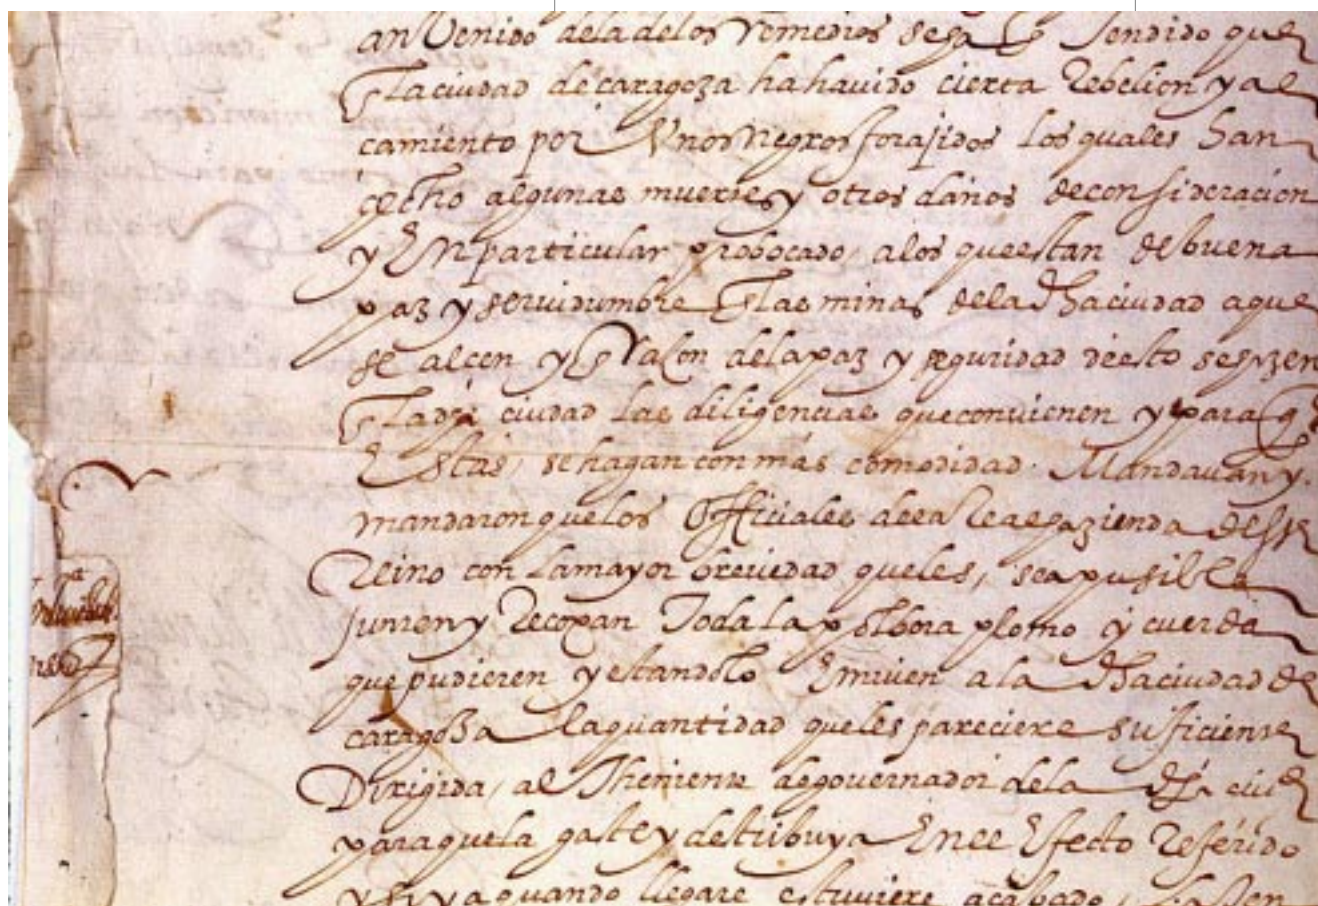 an Venido dela delos Remedios se ha entendido que
En la ciudad de caragoza ha havido cierta Rebelion y al
camiento por Unos negros forajidos los quales han
fecho algunas muertes y otros daños de consideracion
y En particular probocado, a los que estan de buena
paz y servidumbre En las minas dela dha ciudad a que
se alcen y dela paz y seguridad desto se hizen
En la dha ciudad las diligencias que convienen y para q
Estas, se hagan con más comodidad. Mandavan y.
mandaron quelos Officiales dela Real hazienda deste
Reino con la mayor brevedad queles, sea pusible
junten y Recoxan Toda la polbora plomo y cuerda
que pudieren y estandolo Embien a la dha ciudad de
caragoza la quantidad queles pareciere suficiente
Dirigida, al Theniente de governador dela dha ciud
para quela gaste y destribuya En el Efecto Referido
y si ya quando llegare estuviere acabado,